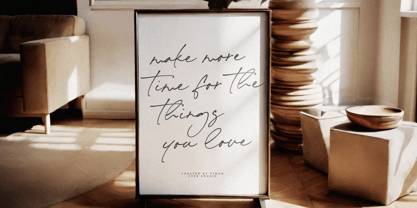 make more
time for the
things
you love
CREATED BY
TYPE STUDIO